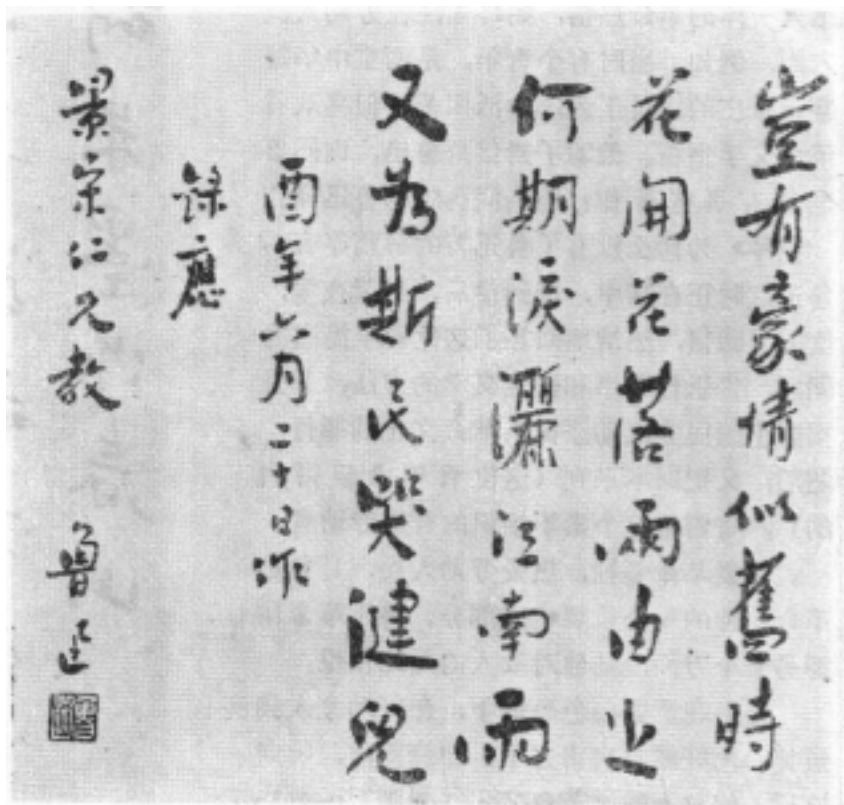 豈有豪情似舊時
花開花落兩由之
何期淚灑江南雨
又為斯民哭健兒
酉年六月二十日作
錄應
景宋仁兄教
魯迅